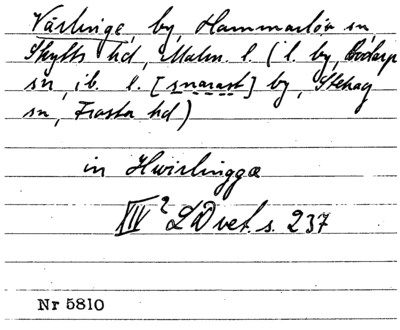 Värlinge, by, Hammarlöv sn,
Skytts hd, Malm. l. (l. by, Bodarp
sn, ib. l. [snarast] by, Stehag
sn, Frosta hd)
in Hwirlinggæ
XIV 2 LDvet. s. 237
Nr 5810